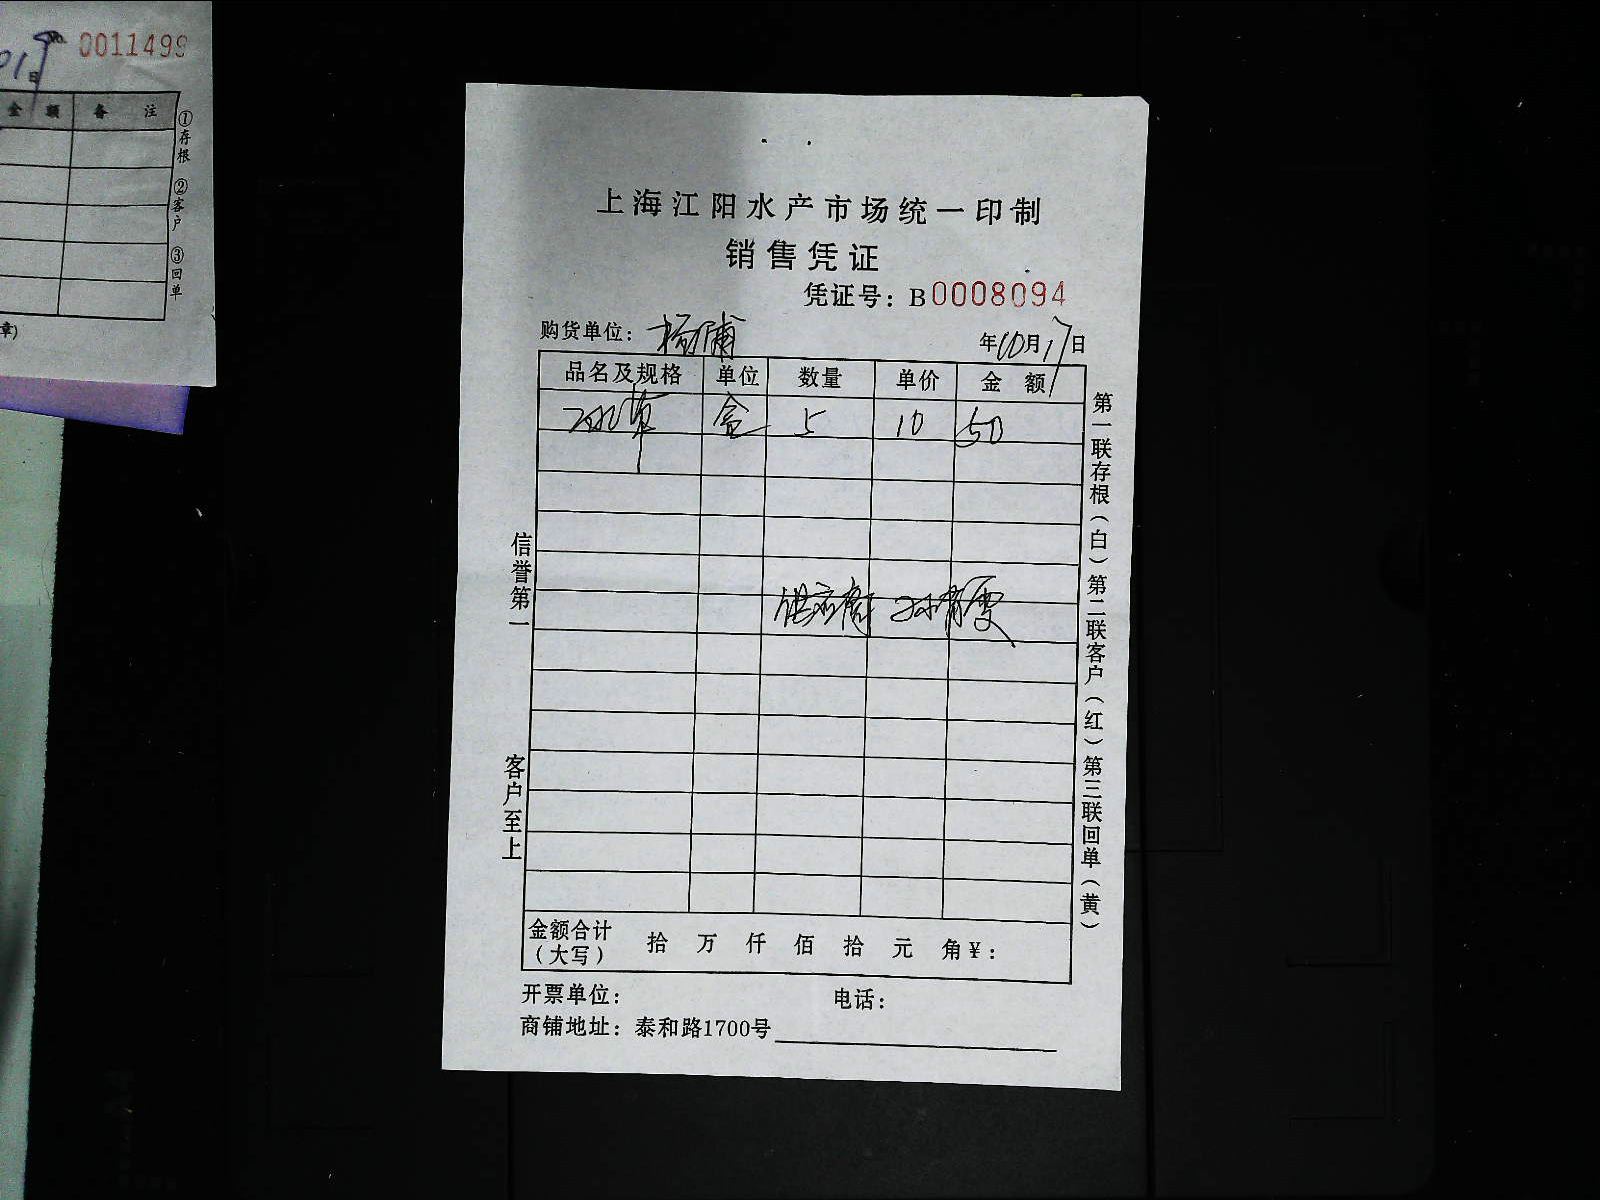 0011499
日
金 额 备 注
①存根 ②客户 ③回单
章)
上海江阳水产市场统一印制
销售凭证
凭证号：B0008094
购货单位：杨浦 年10月17日
品名及规格 单位 数量 单价 金 额
盒 5 10 50
供应商 孙
信誉第一 客户至上
第一联存根（白）第二联客户（红）第三联回单（黄）
金额合计（大写） 拾 万 仟 佰 拾 元 角 ¥：
开票单位： 电话：
商铺地址：泰和路1700号